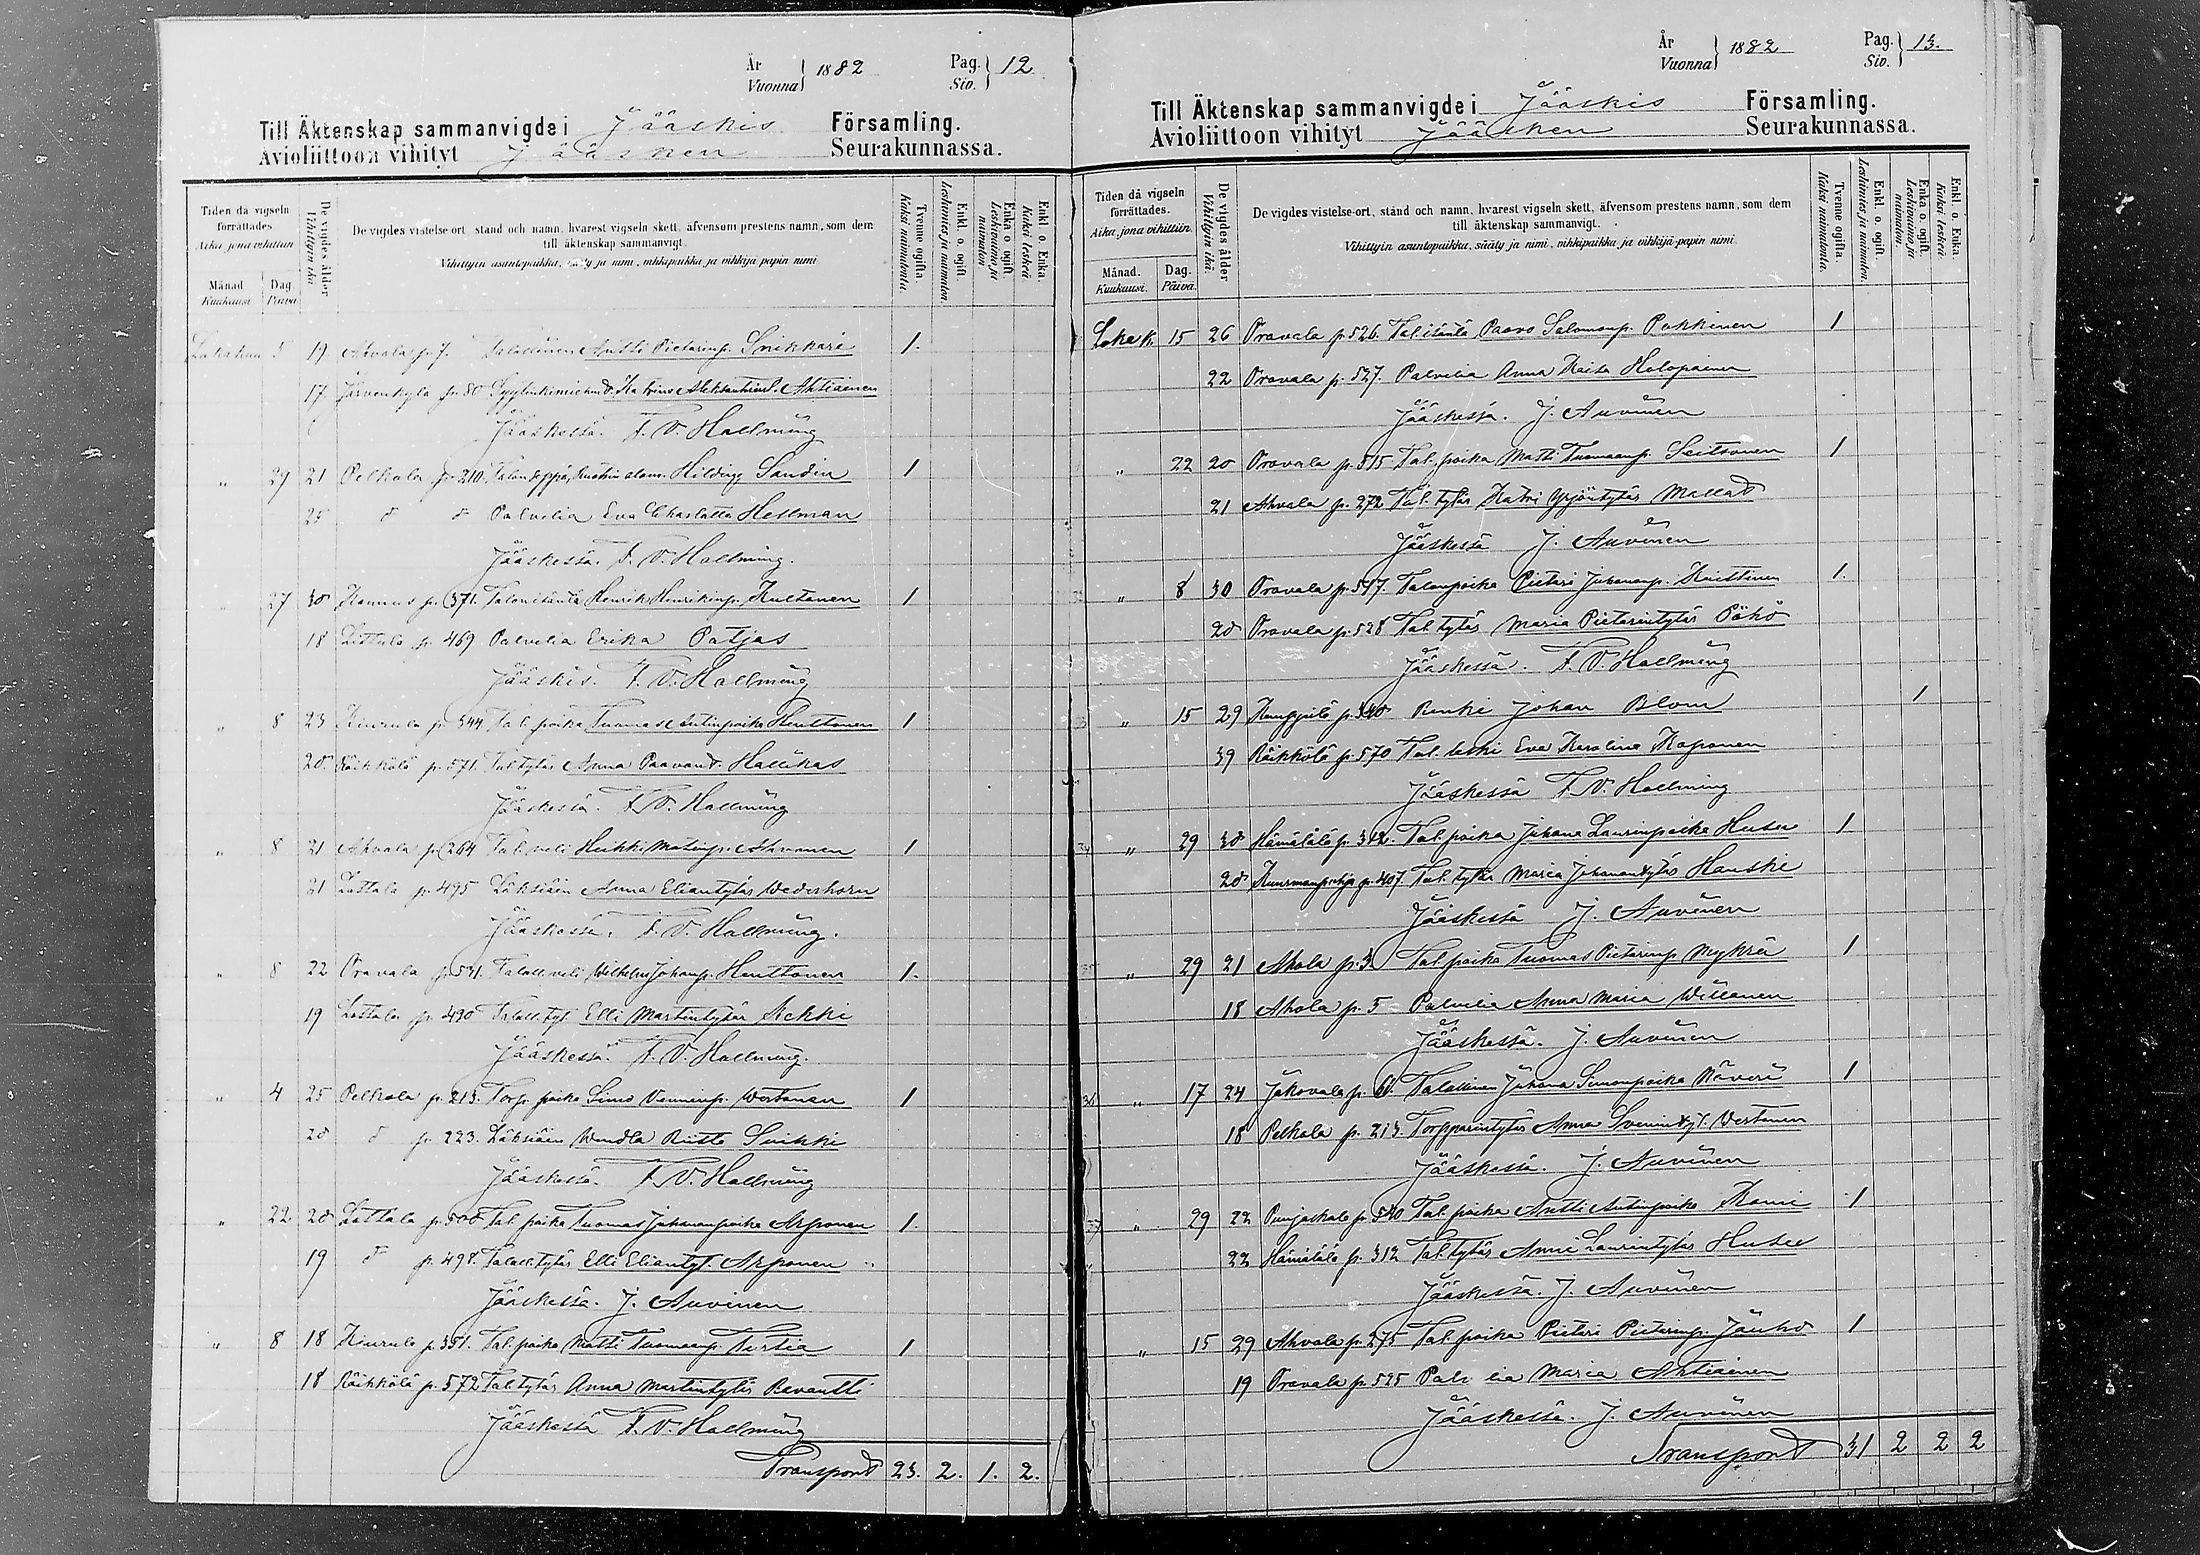 År
Vuonna } 1882
Pag.
Siv. } 12
Till Äktenskap sammanvigde i Jääskis Församling.
Avioliittoon vihityt Jääsken Seurakunnassa.
Tiden då vigseln förrättades
Aika, jona vihittiin
Månad
Kuukausi
Dag
Päivä
De vigdes ålder
Vihittyin ikä
De vigdes vistelse-ort, stånd och namn, hvarest vigseln skett, äfvensom prestens namn, som dem
till äktenskap sammanvigt.
Vihittyin asuntopaikka, sääty ja nimi, vihkipaikka ja vihkijä papin nimi
Tvenne ogifta.
Kaksi naimatonta.
Enkl. o. ogift.
Leskimies ja naimaton
Enka o ogift.
Leskivaimo ja naimaton
Enkl o. Enka.
Kaksi leskeä
5 19 Ahvala p. 7. Talollinen Antti Pietarinp. Snikkari 1.
17 Järvenkylä p. 80 Ahtiainen
Jääskessä. F. V. Hallming
" 29 21 Pelkola p. 210. Hilding Sandin 1
25 d d Palvelia Eva Charlotta Hellman
Jääskessä. F. V. Hallming.
" 27 30 Kannus p. 371. Talonisäntä Henrik Henrikinp. Kultanen 1
18 Lottala p. 469 Palvelia Erika Patjas
Jääskis. F. V. Hallming
" 8 23 Kiurula p. 344 Tal. poika Tuomas Antinpoika Henttonen 1
20. Räikkölä p. 571. Tal tytär Anna Paavont. Hallikas
Jääskessä. F. V. Hallming
" 8 21 Ahvala p. 264 Tal. veli Heikki Matinp. Ahvonen 1
21 Lottala p. 495 Läksiäin Anna Eliantytär Wederhorn
Jääskessä. F. V. Hallming.
" 8 22 Oravala p. 531. Talall. veli Wilhelm Johanp. Henttonen 1.
19 Lottala p. 490 Talall. tyt. Elli Martintytär Ackki
Jääskessä. F. V. Hallming.
" 4 25 Pelkola p. 213. Torp. poika Simo Wertanen 1
20 d p. 223. Läksiäin Wendla Suikki
Jääskessä. F. V. Hallming
" 22 20 Lottala p. 500 Tal poika Tuomas Johananpoika Arponen 1.
19 d p. 498. Talall. tytär Elli Eliantyt. Arponen
Jääskessä. J. Auvinen
" 8 18 Kiurula p. 351. Tal. poika Matti Tuomaanp. Turtia 1
18 Räikkölä p. 572 Tal tytär Anna Martintytär Ravantti
Jääskessä F. V. Hallming
Transport 23. 2. 1. 2.
År
Vuonna } 1882
Pag.
Siv. } 13.
Till Äktenskap sammanvigde i Jääskis Församling.
Avioliittoon vihityt Jääsken Seurakunnassa.
Tiden då vigseln förrättades.
Aika, jona vihittiin.
Månad.
Kuukausi.
Dag.
Päivä.
De vigdes ålder
Vihittyin ikä.
De vigdes vistelse-ort, stånd och namn, hvarest vigseln skett, äfvensom prestens namn, som dem
till äktenskap sammanvigt.
Vihittyin asuntopaikka, sääty ja nimi, vihkipaikka ja vihkijä-papin nimi.
Tvenne ogifta.
Kaksi naimatonta.
Enkl. o. ogift.
Leskimies ja naimaton.
Enka o. ogift.
Leskivaimo ja naimaton
Enkl o. Enka.
Kaksi leskeä.
Loka k. 15 26 Oravala p. 526. Tal isäntä Paavo Salomonp. Pokkinen 1
22 Oravala p. 527. Palvelia Anna Kaisa Holopainen
Jääskessä. J. Auvinen
" 22 20 Oravala p. 515 Tal. poika Matti Tuomaanp. Seitsonen 1
21 Ahvala p. 272 Tal. tytär Katri Yrjöntytär Mallat
Jääskessä J. Auvinen
" 8 30 Oravala p. 547. Talonpoika Pietari Juhananp. Kuittinen 1.
20 Oravala p. 528 Tal. tytär Maria Pietarintytär Pöhö
Jääskessä. F. V. Hallming
" 15 29 p. 340 Renki Johan Blom 1
39 Räikkölä p. 570 Tal. leski Eva Karolina Kaponen
Jääskessä F. V. Hallming
34 " 29 30 Hämälälä p. 312. Tal. poika Juhana Laurinpoika Husu 1
20 Kuurmanpohja p. 407. Tal. tytär Maria Johanantytär Hauske
Jääskessä J. Auvinen
35 " 29 21 Ahola p. 3. Tal poika Tuomas Pietarinp. Mykrä 1
18 Ahola p. 5 Palvelia Anna Maria Willanen
Jääskessä. J. Auvinen
36 " 17 24 Jakovala p. 61. Talollinen Juhana Simonpoika Räveri 1
18 Pelkola p. 213. Torpparintytär Anna Wertanen
Jääskessä. J. Auvinen
37 " 29 22 p. 540 Tal. poika Antti Antinpoika Rami 1
22 Hämälälä p. 312 Tal. tytär Anni Laurintytär Husu
Jääskessä. J. Auvinen
" 15 29 Ahvala p. 275 Tal. poika Pietari Pietarinp. Jäuhö 1
19 Oravala p. 525 Palv lia Maria Ahtiainen
Jääskessä. J. Auvinen
Transport 31 2 2 2